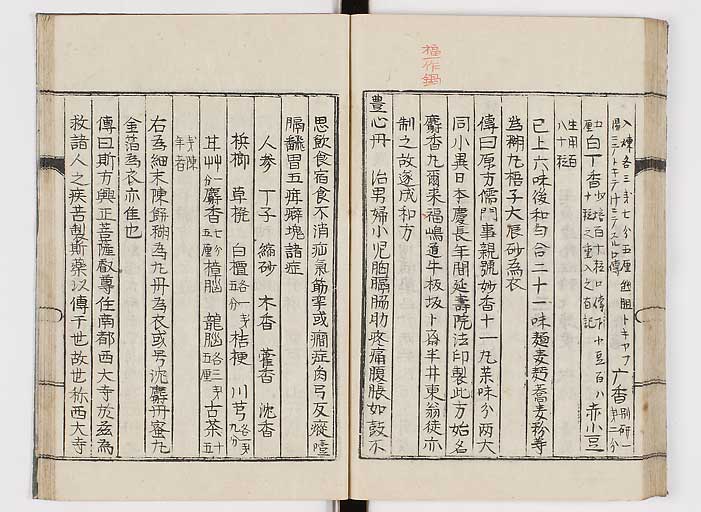 福作鍋
入煉各三戔七分五厘
白丁香 赤小豆
生用百八十粒
已上六味後和勻合二十一味麺麦麪蕎麦粉等
為糊丸梧子大辰砂為衣
傳曰原方儒門事親號妙香十一丸菜味分両大
同小異日本慶長年間延壽院法印製此方始名
麝香丸爾来福嶋道牛板坂卜斎半井東翁徒亦
制之故遂成和方
豊心丹 治男婦小児胸膈脇肋疼痛腹脹如鼓不
思飲食宿食不消疝氣筋牽或癎症肉弓反瘲噎
膈飜胃五痺癖塊諸症
人参 丁子 縮砂 木香 藿香 沈香
梹榔 草梡 白檀各一戔五分 桔梗 川芎各一戔九分
甘艸一分 麝香七分五厘 樟脳 龍脳各三戔五厘 古茶五十戔陳年者
右為細末陳餅糊為丸丹為衣或号沈麝丹蜜丸
金箔為衣亦佳也
傳曰斯方興正菩薩叡尊住南都西大寺於茲為
救諸人之疾苦製斯薬以傳千世故世称西大寺